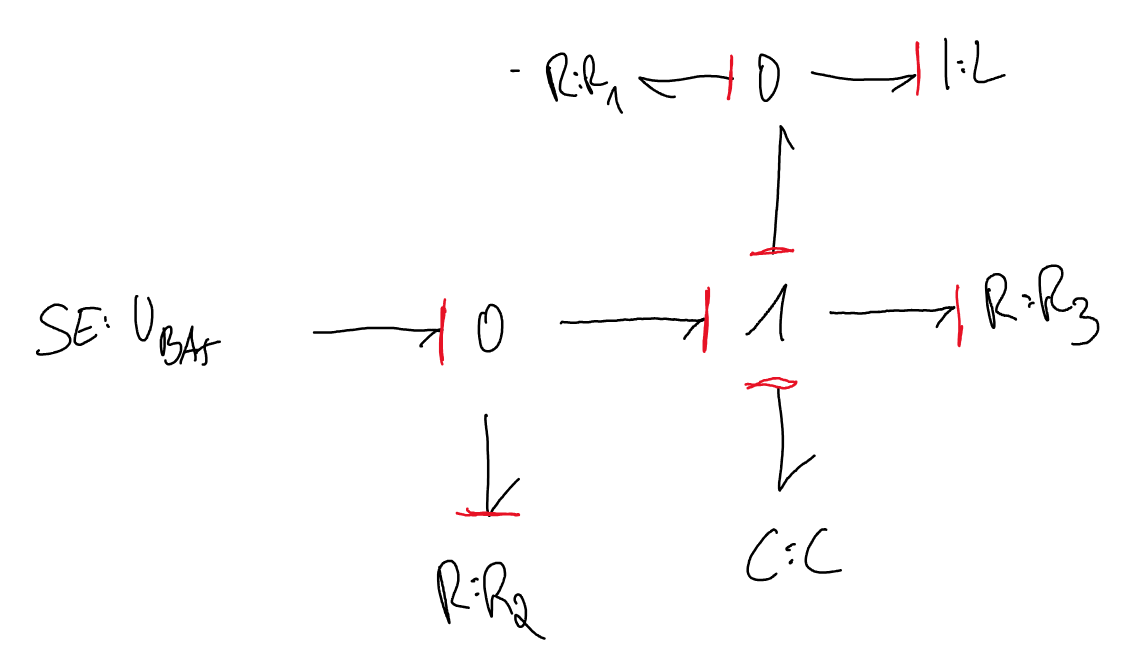 - R:R1 0 I:L
SE: UBAT 0 1 R:R3
R:R2
C:C